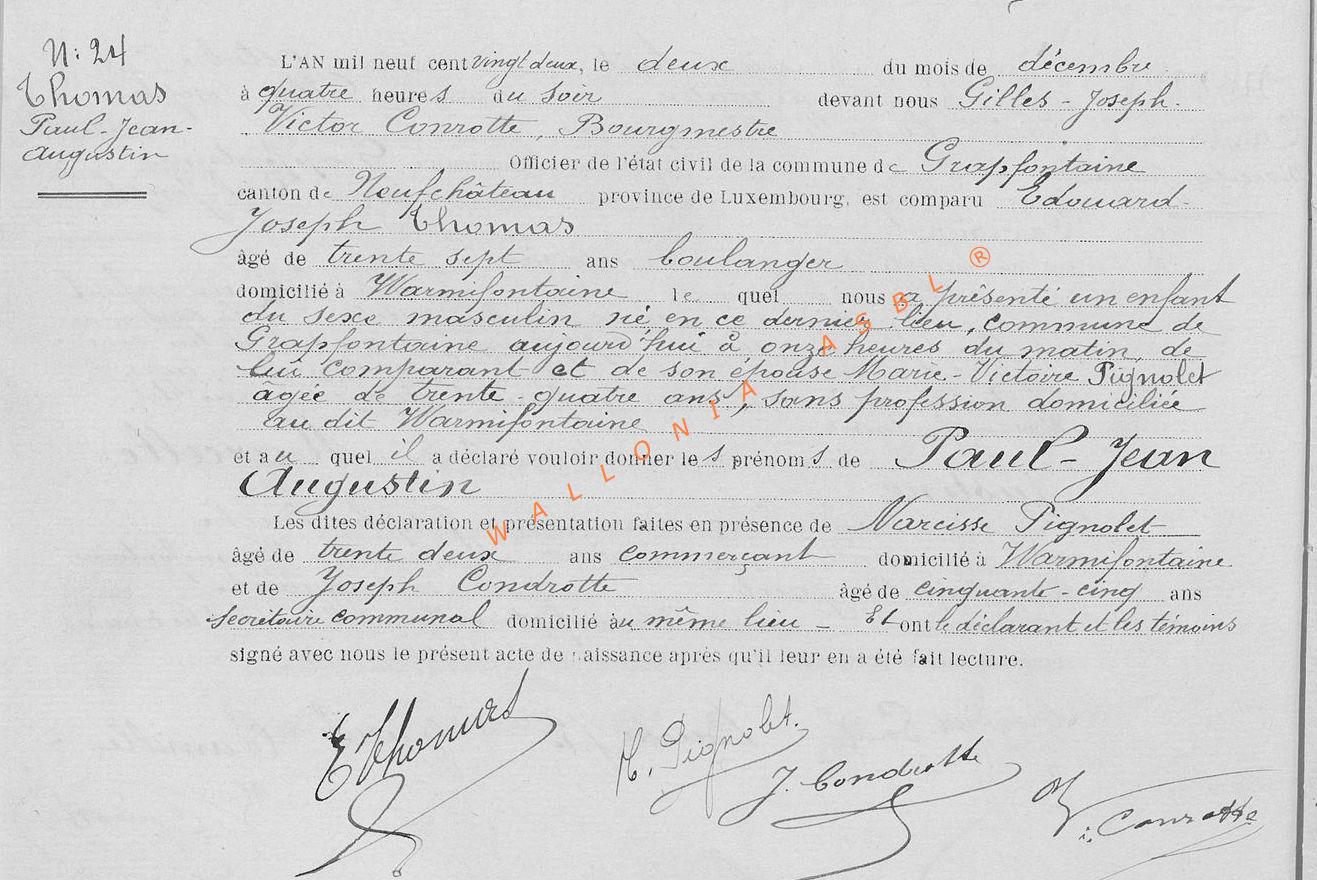 N: 24
Thomas
Paul-Jean-
Augustin
L'AN mil neuf cent vingt deux, le deux du mois de décembre
à quatre heures du soir devant nous Gilles-Joseph-
Victor Conrotte, Bourgmestre
Officier de l'état civil de la commune de Grapfontaine
canton de Neufchâteau province de Luxembourg, est comparu Edouard-
Joseph Thomas
âgé de trente sept ans boulanger
domicilié à Warmifontaine le quel nous a présenté un enfant
du sexe masculin né en ce dernier lieu, commune de
Grapfontaine aujourd'hui à onze heures du matin, de
lui comparant et de son épouse Marie-Victoire Pignolet
âgée de trente-quatre ans, sans profession domiciliée
au dit Warmifontaine
et au quel il a déclaré vouloir donner les prénoms de Paul-Jean
Augustin
Les dites déclaration et présentation faites en présence de Narcisse Pignolet
âgé de trente deux ans commerçant domicilié à Warmifontaine
et de Joseph Condrotte âgé de cinquante-cinq ans
secrétaire communal domicilié au même lieu - Et ont le déclarant et les témoins
signé avec nous le présent acte de naissance après qu'il leur en a été fait lecture.
E Thomas
N. Pignolet.
J. Condrotte
Conrotte
WALLONIA ASBL ®